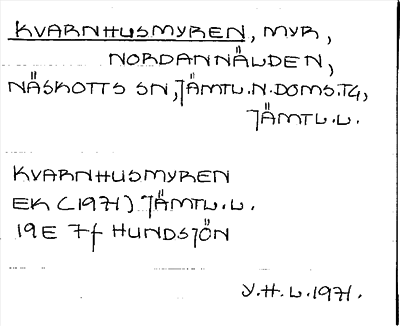 KVARNHUSMYREN, MYR,
NORDANNÄLDEN,
NÄSKOTTS SN, JÄMTL.N.DOMS.TG,
JÄMTL.L.
KVARNHUSMYREN
EK (1971) JÄMTL.L.
19E 7f HUNDSJÖN
Y.H.L.1971.